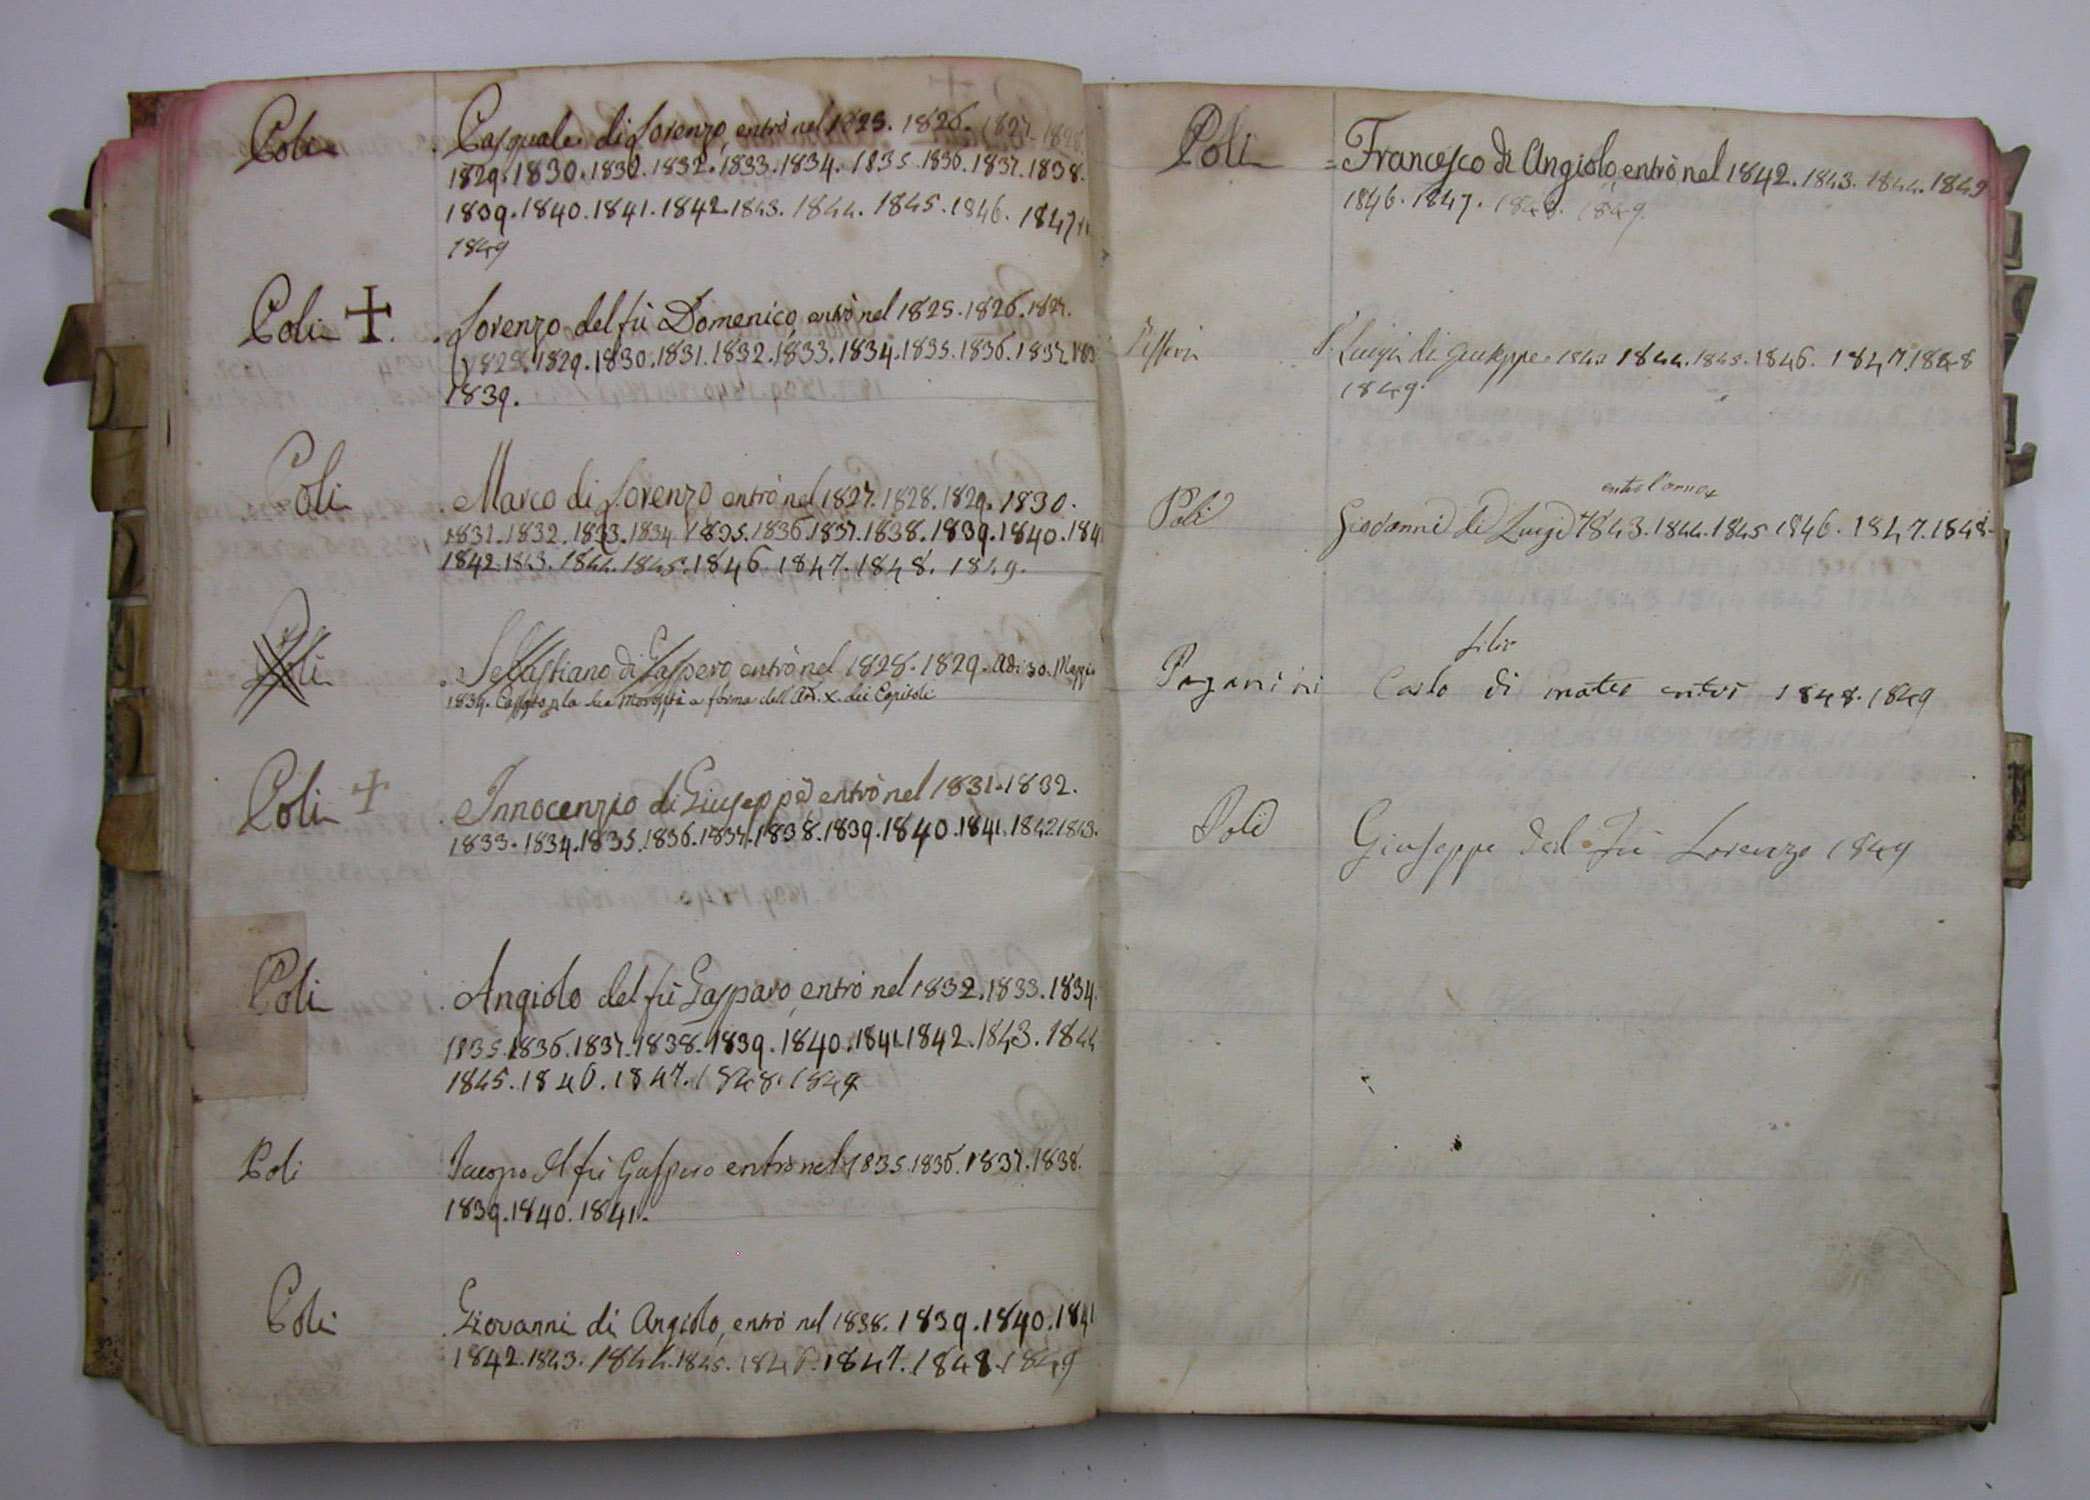 Poli . Pasquale di Lorenzo, entrò nel 1825. 1826. 1827. 1828.
1829. 1830. 1831. 1832. 1833. 1834. 1835. 1836. 1837. 1838.
1839. 1840. 1841. 1842. 1843. 1844. 1845. 1846. 1847.
1849
Poli ✝. . Lorenzo del fù Domenico, entrò nel 1825. 1826. 1827.
1828. 1829. 1830. 1831. 1832. 1833. 1834. 1835. 1836. 1837. 183
1839.
Poli . Marco di Lorenzo entrò nel 1827. 1828. 1829. 1830.
1831. 1832. 1833. 1834. 1835. 1836. 1837. 1838. 1839. 1840. 184
1842. 1843. 1844. 1845. 1846. 1847. 1848. 1849.
Poli . Sebastiano di Gaspero entrò nel 1828. 1829. Adi 30. Maggio
1834. Cassato p la sua Morosità a forma dell'Art. X. dei Capitoli
Poli ✝ . Innocenzio di Giuseppe entrò nel 1831. 1832.
1833. 1834. 1835. 1836. 1837. 1838. 1839. 1840. 1841. 1842. 1843.
Poli . Angiolo del fù Gasparo, entrò nel 1832. 1833. 1834.
1835. 1836. 1837. 1838. 1839. 1840. 1841. 1842. 1843. 1844
1845. 1846. 1847. 1848. 1849
Poli Iacopo del fù Gaspero entrò nel 1835. 1836. 1837. 1838.
1839. 1840. 1841.
Poli . Giovanni di Angiolo, entrò nel 1838. 1839. 1840. 1841
1842. 1843. 1844. 1845. 1846. 1847. 1848. 1849
Poli = Francesco di Angiolo, entrò nel 1842. 1843. 1844. 1845
1846. 1847. 1848. 1849.
Pifferi Luigi di Giuseppe 1843 1844. 1845. 1846. 1847. 1848
1849.
entrò l'anno
Poli Giovanni di Luigi 1843. 1844. 1845 1846. 1847. 1848.
filio
Paganini Carlo di mateo entrò 1848. 1849
Poli Giuseppe del fù Lorenzo 1849